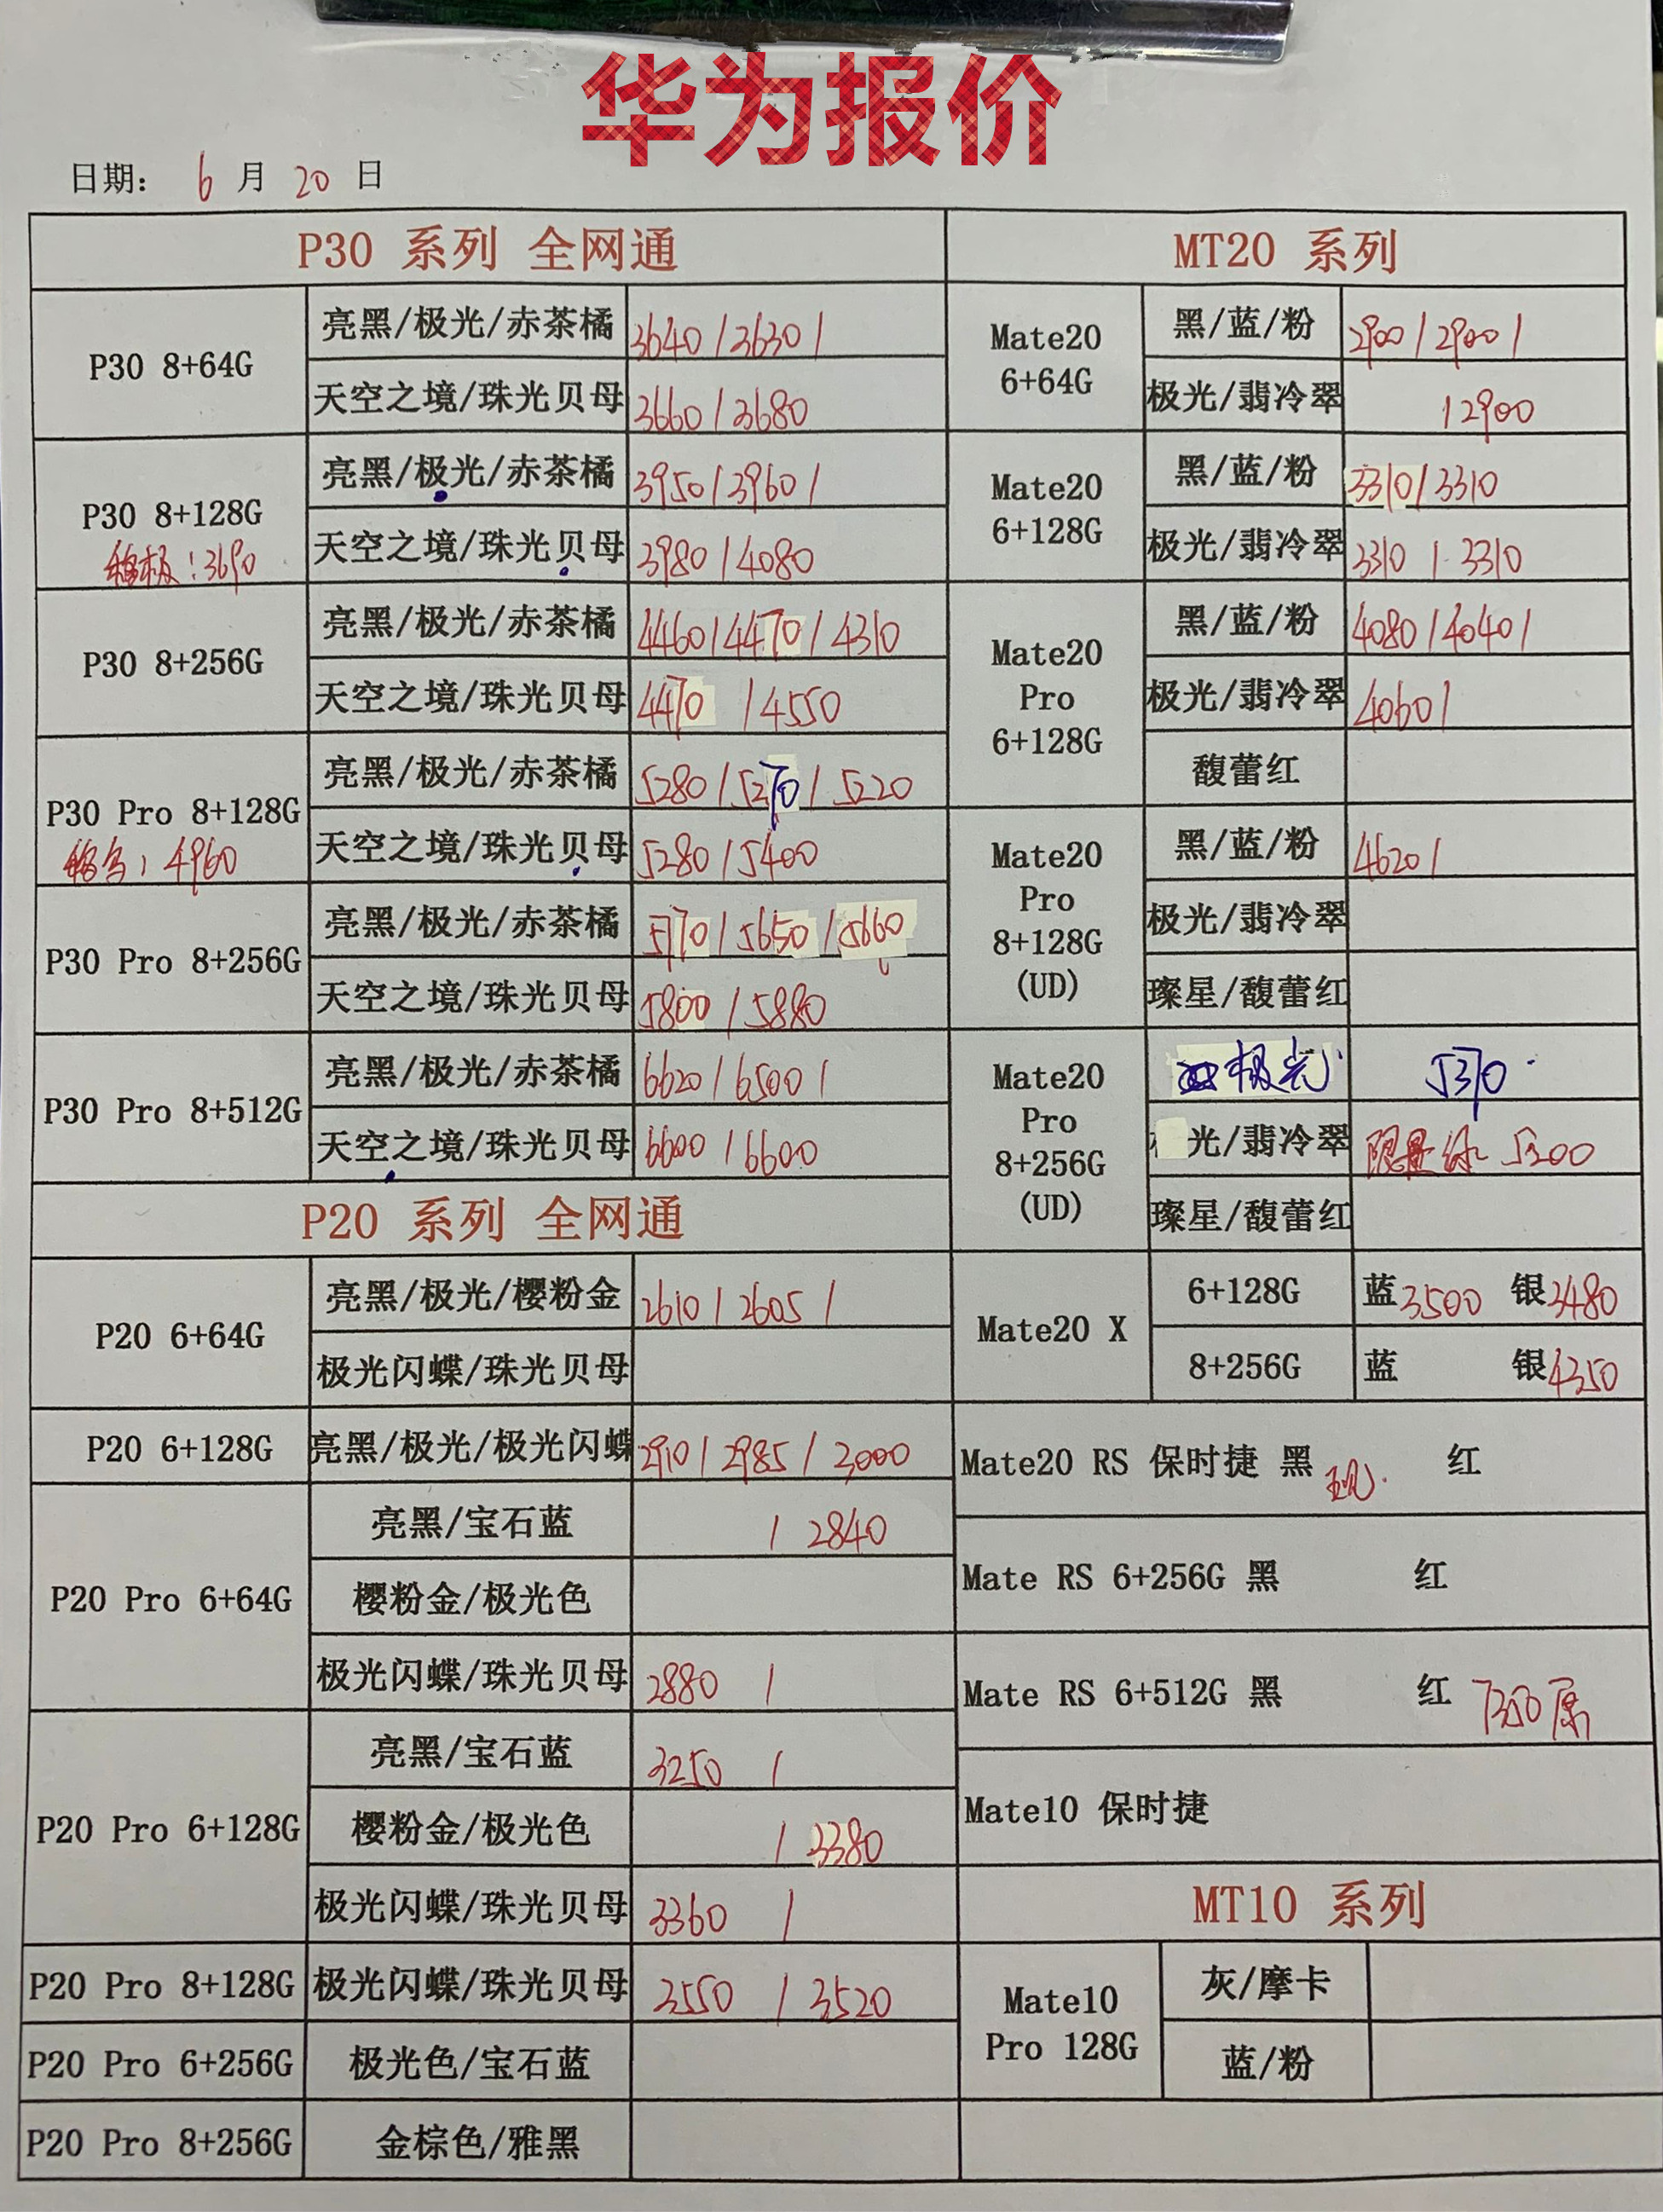 华为报价
日期： 6 月 20 日
P30 系列 全网通
P30 8+64G
亮黑/极光/赤茶橘 3640/3630/
天空之境/珠光贝母 3660/3680
P30 8+128G
:3690
亮黑/极光/赤茶橘 3950/3960/
天空之境/珠光贝母 3980/4080
P30 8+256G
亮黑/极光/赤茶橘 4460/4470/4310
天空之境/珠光贝母 4470 /4550
P30 Pro 8+128G
4960
亮黑/极光/赤茶橘 5280/5270/5220
天空之境/珠光贝母 5280/5400
P30 Pro 8+256G
亮黑/极光/赤茶橘 5770/5650/5660
天空之境/珠光贝母 5800/5880
P30 Pro 8+512G
亮黑/极光/赤茶橘 6620/6500/
天空之境/珠光贝母 6600/6600
P20 系列 全网通
P20 6+64G
亮黑/极光/樱粉金 2610/2605/
极光闪蝶/珠光贝母
P20 6+128G
亮黑/极光/极光闪蝶 2910/2985/3000
P20 Pro 6+64G
亮黑/宝石蓝 / 2840
樱粉金/极光色
极光闪蝶/珠光贝母 2880 /
P20 Pro 6+128G
亮黑/宝石蓝 3250 /
樱粉金/极光色 / 3380
极光闪蝶/珠光贝母 3360 /
P20 Pro 8+128G
极光闪蝶/珠光贝母 3550 / 3520
P20 Pro 6+256G
极光色/宝石蓝
P20 Pro 8+256G
金棕色/雅黑
MT20 系列
Mate20
6+64G
黑/蓝/粉 2900/2900/
极光/翡冷翠 /2900
Mate20
6+128G
黑/蓝/粉 3310/3310
极光/翡冷翠 3310 / 3310
Mate20
Pro
6+128G
黑/蓝/粉 4080/4040/
极光/翡冷翠 4060/
馥蕾红
Mate20
Pro
8+128G
(UD)
黑/蓝/粉 4620/
极光/翡冷翠
璨星/馥蕾红
Mate20
Pro
8+256G
(UD)
极光 5370
光/翡冷翠 5300
璨星/馥蕾红
Mate20 X
6+128G 蓝3500 银3480
8+256G 蓝 银4350
Mate20 RS 保时捷 黑 现 红
Mate RS 6+256G 黑 红
Mate RS 6+512G 黑 红 7350原
Mate10 保时捷
MT10 系列
Mate10
Pro 128G
灰/摩卡
蓝/粉